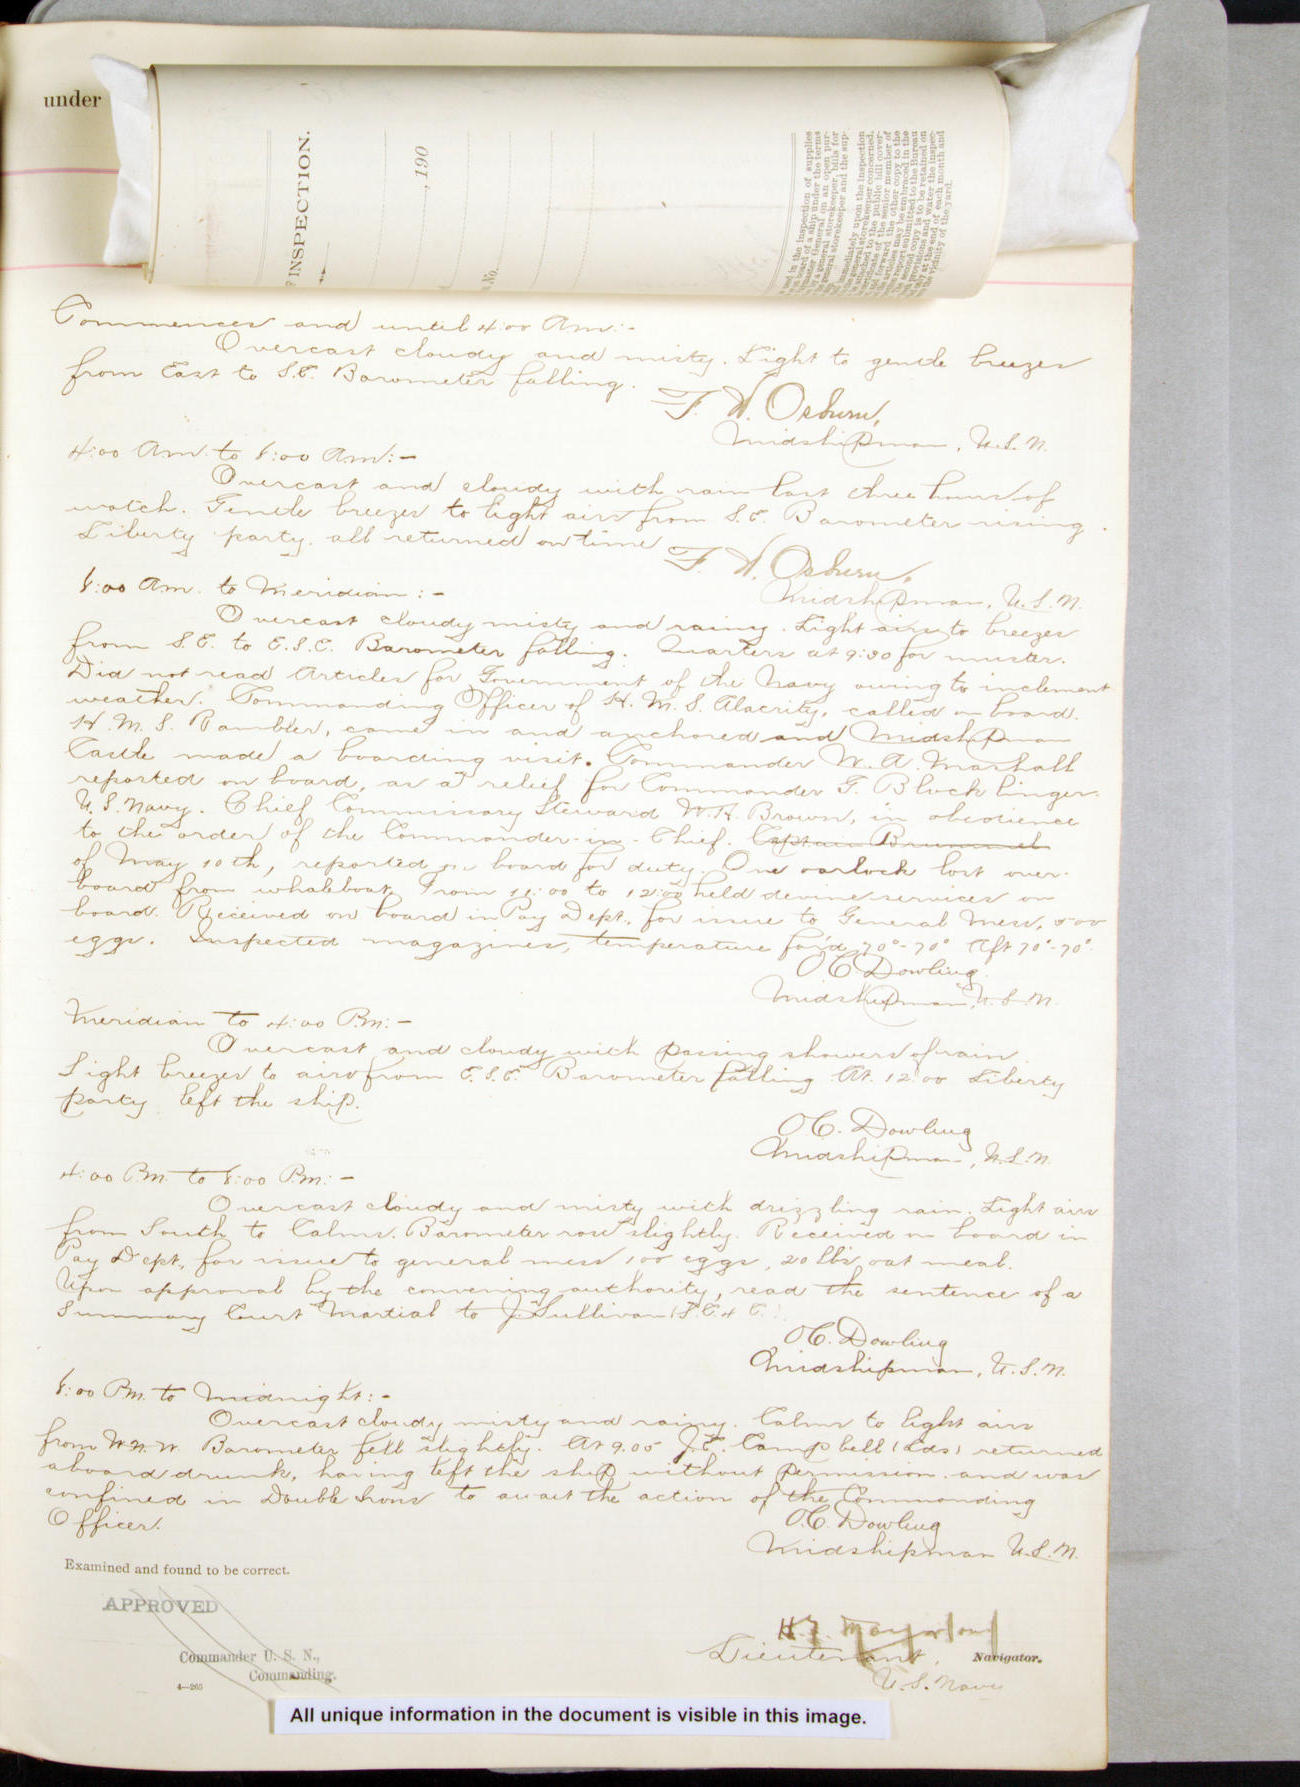 under
INSPECTION.
, 190
No.
ed in the inspection of supplies
board of a ship under the terms
General on an open pur-
general storekeeper, bills for
general storekeeper and the sup-
immediately upon the inspection
general storekeeper concerned,
attached to the public bill cover-
of the senior member of
forward the other copy to the
articles may be embraced in the
report submitted to the Bureau
second copy is to be retained on
provisions and water the inspec-
at the end of each month and
the vicinity of the yard.
Commences and until 4:00 Am:-
Overcast cloudy and misty. Light to gentle breezes
from East to S.E. Barometer falling.
F. W. Osburn,
Midshipman, U.S.N.
4:00 Am. to 8:00 Am:-
Overcast and cloudy with rain last three hours of
watch. Gentle breezes to light airs from S.E. Barometer rising.
Liberty party all returned on time
F. W. Osburn,
Midshipman, U.S.N.
8:00 Am. to Meridian:-
Overcast cloudy misty and rainy. Light airs to breezes
from S.E. to E.S.E. Barometer falling. Quarters at 9:30 for muster.
Did not read Articles for Government of the Navy owing to inclement
weather. Commanding Officer of H.M.S. Alacrity, called on board.
H.M.S. Rambler, came in and anchored and Midshipman
Castle made a boarding visit. Commander W. A. Marshall
reported on board, as a relief for Commander G. Blocklinger
U.S. Navy. Chief Commissary Steward W.H. Brown, in obedience
to the order of the Commander-in-Chief. Captain Brummel
of May 10th, reported on board for duty. One oarlock lost over-
board from whaleboat. From 11:00 to 12:00 held devine services on
board. Received on board in Pay Dept. for issue to General Mess, 500
eggs. Inspected magazines, temperature for'd 70°-70° Aft 70°-70°.
O C Dowling
Midshipman, U.S.N.
Meridian to 4:00 Pm:-
Overcast and cloudy with passing showers of rain.
Light breezes to airs from E.S.E. Barometer falling At. 12:00 Liberty
party left the ship.
O C. Dowling
Midshipman, U.S.N.
4:00 P.M. to 8:00 Pm:-
Overcast cloudy and misty with drizzling rain. Light airs
from South to Calms. Barometer rose slightly. Received on board in
Pay Dept., for issue to general mess 100 eggs, 20 lbs oat meal.
Upon approval by the convening authority, read the sentence of a
Summary Court Martial to J. Sullivan (S.C. 4 C.).
O C. Dowling
Midshipman, U.S.N.
8:00 Pm. to Midnight:-
Overcast cloudy misty and rainy. Calms to light airs
from W.N.W. Barometer fell slightly. At 9.05 J.E. Campbell (Lds) returned
aboard drunk, having left the ship without permission. and was
confined in Double Irons to await the action of the Commanding
Officer.
O.C. Dowling
Midshipman U.S.N.
Examined and found to be correct.
APPROVED
Commander U. S. N.,
Commanding.
4—265
Lieutenant,
Navigator.
U.S. Navy
All unique information in the document is visible in this image.